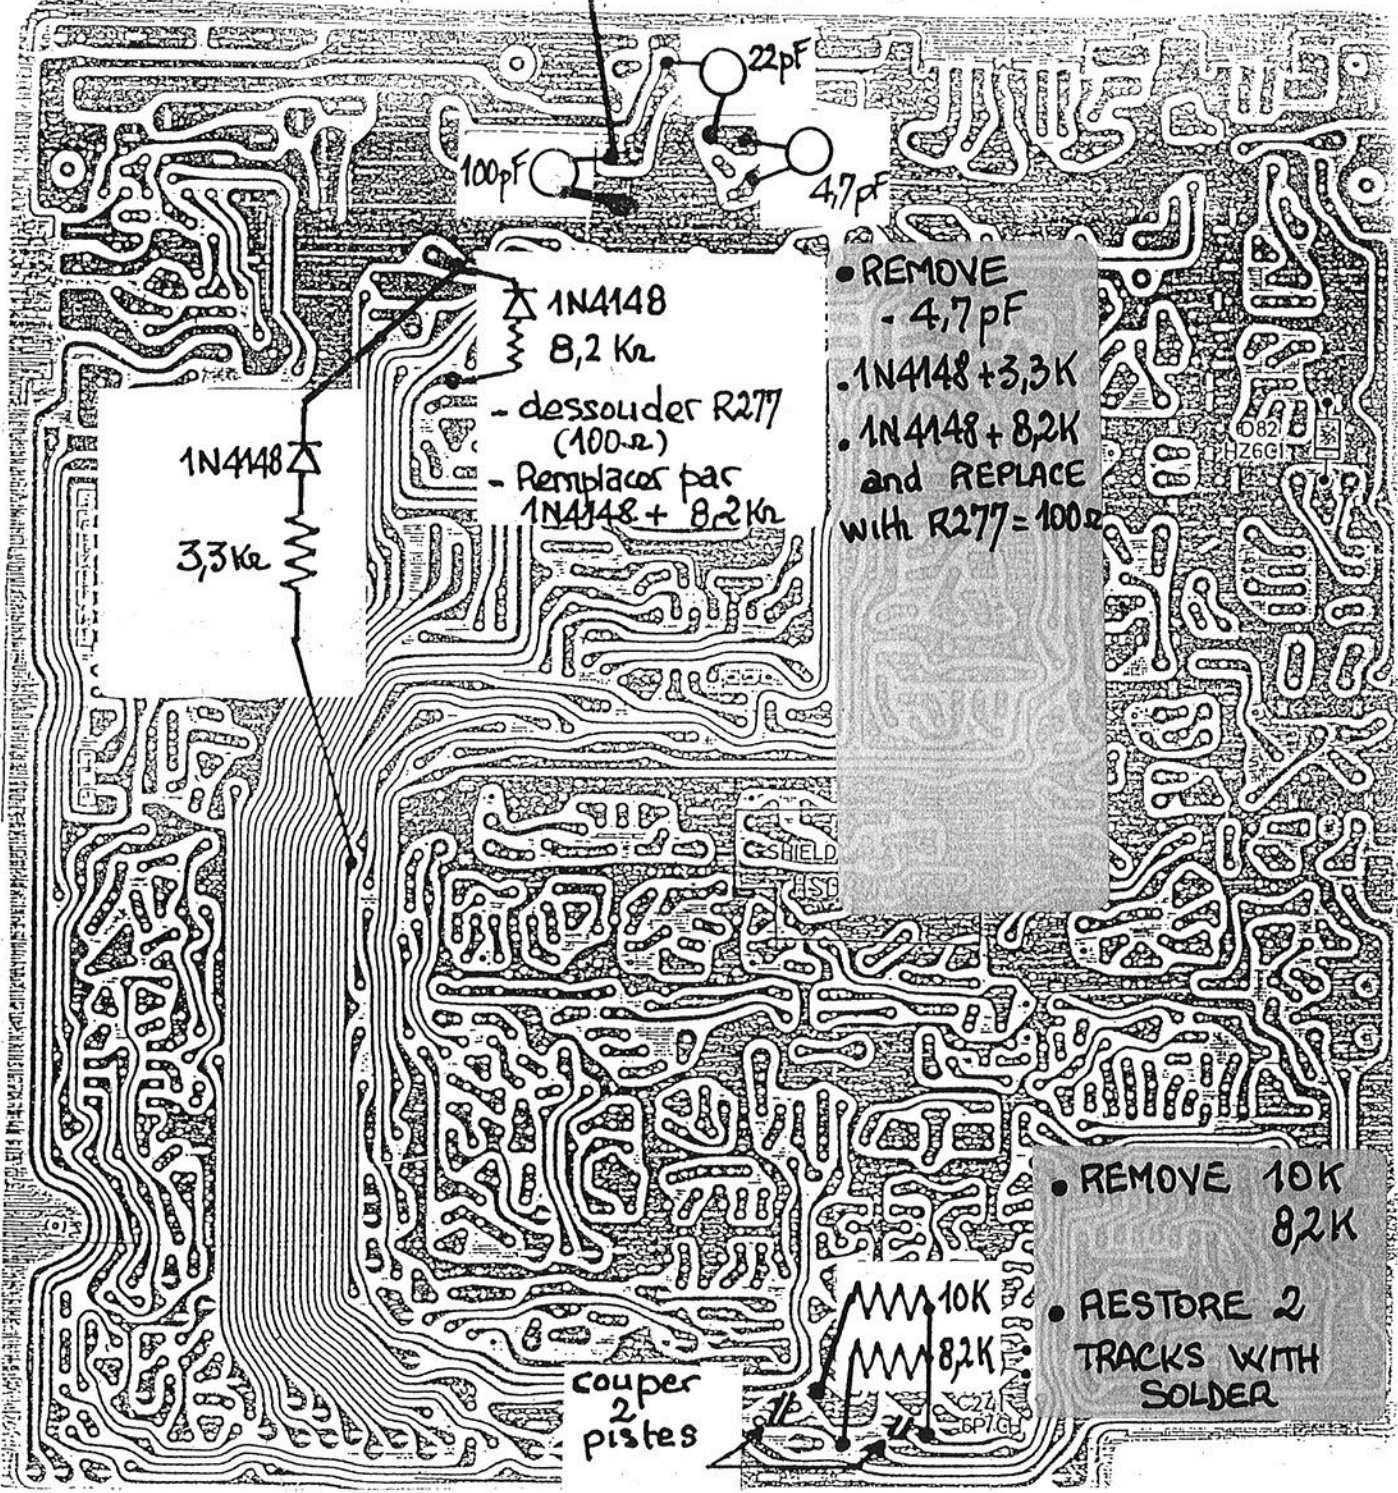 22pF
100pF
4,7pF
1N4148
8,2 KΩ
- dessouder R277
(100Ω)
- Remplacer par
1N4148 + 8,2KΩ
1N4148
3,3KΩ
• REMOVE
- 4,7pF
. 1N4148+3,3K
. 1N4148+ 8,2K
and REPLACE
with R277=100Ω
D82
HZ6C1
SHIELD
• REMOVE 10K
8,2K
• RESTORE 2
TRACKS WITH
SOLDER
10K
8,2K
couper
2
pistes